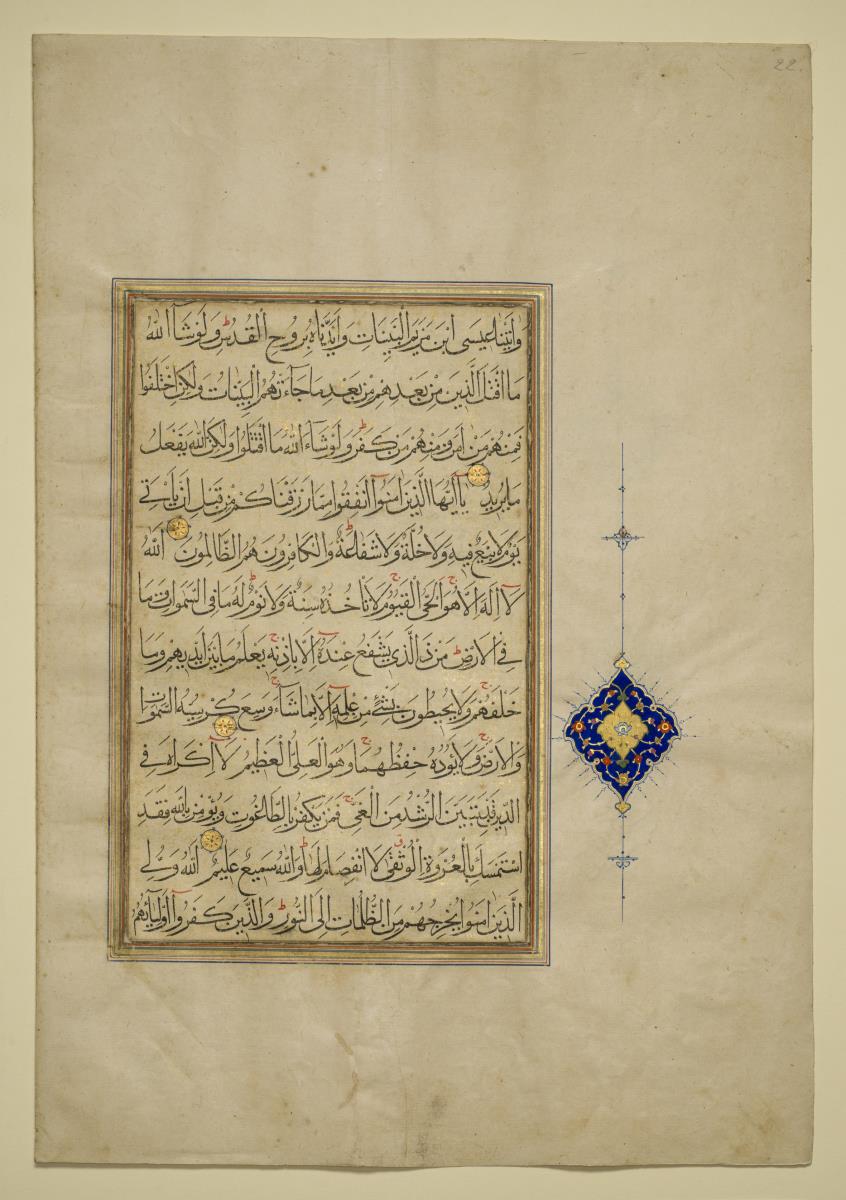 22.
وَاٰتَيْنَا عِيسَى ابْنَ مَرْيَمَ الْبَيِّنَاتِ وَاَيَّدْنَاهُ بِرُوحِ الْقُدُسِ ط وَلَوْ شَآءَ اللّٰهُ
مَا اقْتَتَلَ الَّذِينَ مِنْ بَعْدِهِمْ مِنْ بَعْدِ مَا جَآءَتْهُمُ الْبَيِّنَاتُ وَلٰكِنِ اخْتَلَفُوا
فَمِنْهُمْ مَنْ اٰمَنَ وَمِنْهُمْ مَنْ كَفَرَ ط وَلَوْ شَآءَ اللّٰهُ مَا اقْتَتَلُوا وَلٰكِنَّ اللّٰهَ يَفْعَلُ
مَا يُرِيدُ يَآ اَيُّهَا الَّذِينَ اٰمَنُوآ اَنْفِقُوا مِمَّا رَزَقْنَاكُمْ مِنْ قَبْلِ اَنْ يَاْتِيَ
يَوْمٌ لَا بَيْعٌ فِيهِ وَلَا خُلَّةٌ وَلَا شَفَاعَةٌ ط وَالْكَافِرُونَ هُمُ الظَّالِمُونَ اَللّٰهُ
لَآ اِلٰهَ اِلَّا هُوَ ج اَلْحَيُّ الْقَيُّومُ ج لَا تَاْخُذُهُ سِنَةٌ وَلَا نَوْمٌ ط لَهُ مَا فِي السَّمٰوَاتِ وَمَا
فِي الْاَرْضِ ط مَنْ ذَا الَّذِي يَشْفَعُ عِنْدَهُٓ اِلَّا بِاِذْنِهِ ج يَعْلَمُ مَا بَيْنَ اَيْدِيهِمْ وَمَا
خَلْفَهُمْ ج وَلَا يُحِيطُونَ بِشَيْءٍ مِنْ عِلْمِهِٓ اِلَّا بِمَا شَآءَ ج وَسِعَ كُرْسِيُّهُ السَّمٰوَاتِ
وَالْاَرْضَ ج وَلَا يَؤُدُهُ حِفْظُهُمَا ج وَهُوَ الْعَلِيُّ الْعَظِيمُ لَآ اِكْرَاهَ فِي
الدِّينِ قَدْ تَبَيَّنَ الرُّشْدُ مِنَ الْغَيِّ ج فَمَنْ يَكْفُرْ بِالطَّاغُوتِ وَيُؤْمِنْ بِاللّٰهِ فَقَدِ
اسْتَمْسَكَ بِالْعُرْوَةِ الْوُثْقٰى ق لَا انْفِصَامَ لَهَا ط وَاللّٰهُ سَمِيعٌ عَلِيمٌ اَللّٰهُ وَلِيُّ
الَّذِينَ اٰمَنُوا يُخْرِجُهُمْ مِنَ الظُّلُمَاتِ اِلَى النُّورِ ط وَالَّذِينَ كَفَرُوآ اَوْلِيَآئُهُمُ